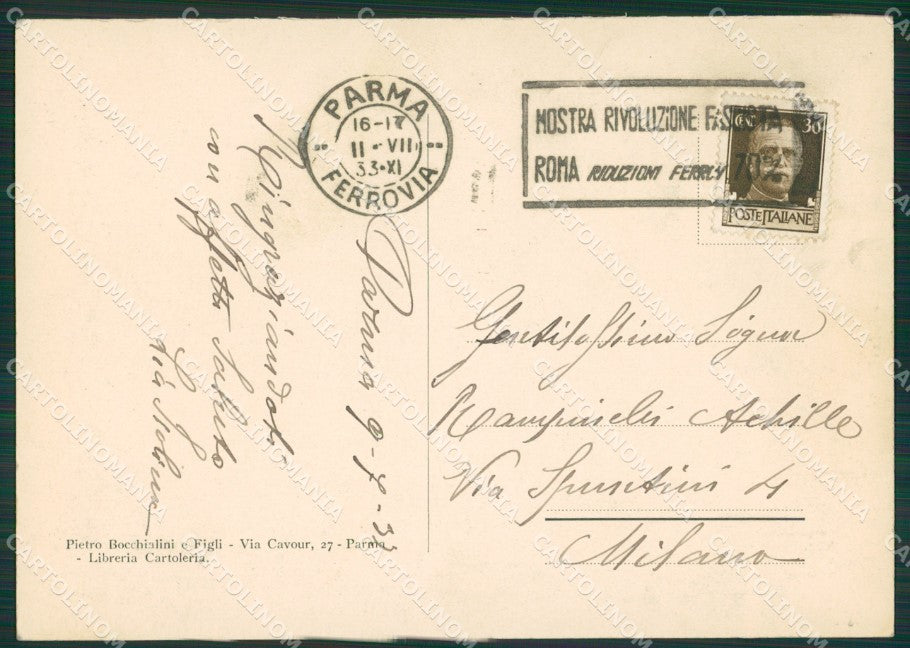 PARMA
16-17
11·VII
33·XI
FERROVIA
MOSTRA RIVOLUZIONE FASCISTA
ROMA RIDUZIONI FERROV 70%
CENT. 30
POSTE ITALIANE
Parma 9-7-33
Ringraziandoti
con affetto saluto
Gentilissimo Signor
Achille
Via 4
Milano
Pietro Bocchialini e Figli - Via Cavour, 27 - Parma
- Libreria Cartoleria.
CARTOLINOMANIA